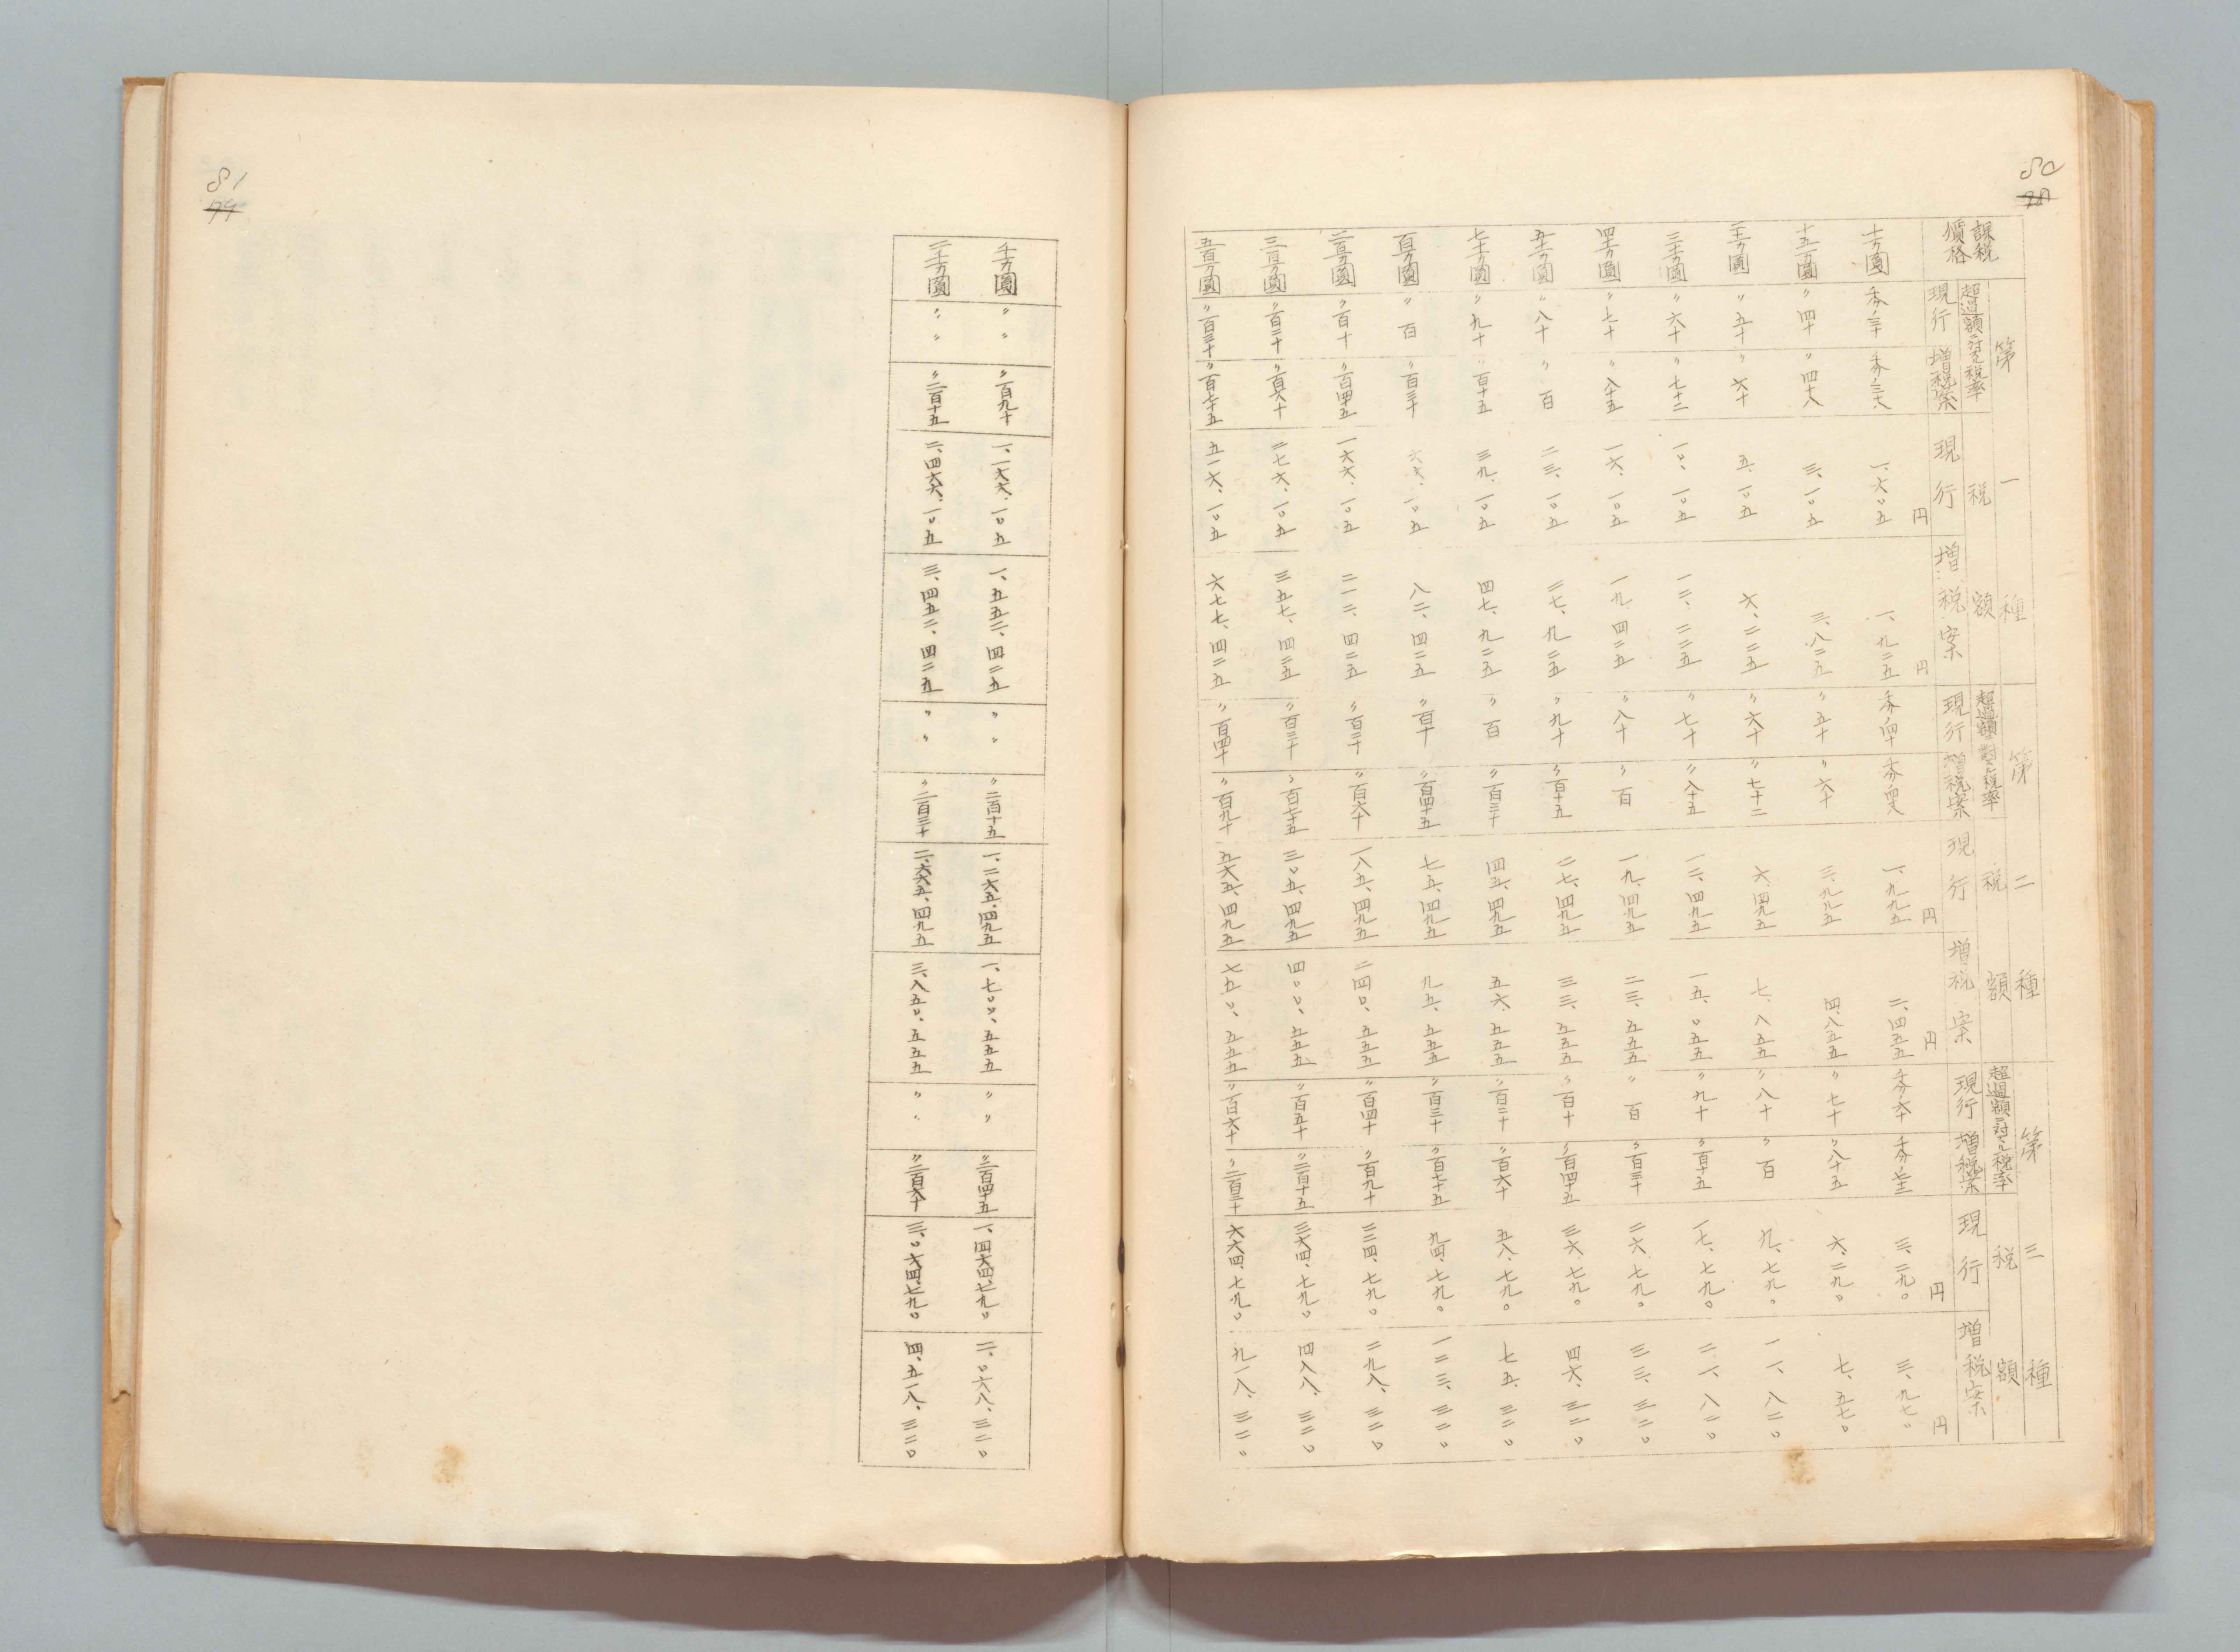 80
78
第一種 第二種 第三種
課税價格
超過額ニ対スル税率 税額 超過額ニ対スル税率 税額 超過額ニ対スル税率 税額
現行 増税案 現行 増税案 現行 増税案 現行 増税案 現行 増税案 現行 増税案
円 円 円 円 円 円
十万圓 千分ノ三十 千分ノ三六 一、六〇五 一、九二五 千分ノ四十 千分ノ四八 一、九九五 二、四五五 千分ノ六十 千分ノ七十二 三、二九〇 三、九七〇
十五万圓 〃四十 〃四十八 三、一〇五 三、八二五 〃五十 〃六十 三、九九五 四、八五五 〃七十 〃八十五 六、二九〇 七、五七〇
二十万圓 〃五十 〃六十 五、一〇五 六、二二五 〃六十 〃七十二 六、四九五 七、八五五 〃八十 〃百 九、七九〇 一一、八二〇
三十万圓 〃六十 〃七十二 一〇、一〇五 一二、二二五 〃七十 〃八十五 一二、四九五 一五、〇五五 〃九十 〃百十五 一七、七九〇 二一、八二〇
四十万圓 〃七十 〃八十五 一六、一〇五 一九、四二五 〃八十 〃百 一九、四九五 二三、五五五 〃百 〃百三十 二六、七九〇 三三、三二〇
五十万圓 〃八十 〃百 二三、一〇五 二七、九二五 〃九十 〃百十五 二七、四九五 三三、五五五 〃百十 〃百四十五 三六、七九〇 四六、三二〇
七十万圓 〃九十 〃百十五 三九、一〇五 四七、九二五 〃百 〃百三十 四五、四九五 五六、五五五 〃百二十 〃百六十 五八、七九〇 七五、三二〇
百万圓 〃百 〃百三十 六六、一〇五 八二、四二五 〃百十 〃百四十五 七五、四九五 九五、五五五 〃百三十 〃百七十五 九四、七九〇 一二三、三二〇
二百万圓 〃百十 〃百四十五 一六六、一〇五 二一二、四二五 〃百二十 〃百六十 一八五、四九五 二四〇、五五五 〃百四十 〃百九十 二二四、七九〇 二九八、三二〇
三百万圓 〃百二十 〃百六十 二七六、一〇五 三五七、四二五 〃百三十 〃百七十五 三〇五、四九五 四〇〇、五五五 〃百五十 〃二百十五 三六四、七九〇 四八八、三二〇
五百万圓 〃百三十 〃百七十五 五一六、一〇五 六七七、四二五 〃百四十 〃百九十 五六五、四九五 七五〇、五五五 〃百六十 〃二百三十 六六四、七九〇 九一八、三二〇
81
79
千万圓 〃〃 〃百九十 一、一六六、一〇五 一、五五二、四二五 〃〃 〃二百十五 一、二六五、四九五 一、七〇〇、五五五 〃〃 〃二百四十五 一、四六四、七九〇 二、〇六八、三二〇
二千万圓 〃〃 〃二百十五 二、四六六、一〇五 三、四五二、四二五 〃〃 〃二百三十 二、六六五、四九五 三、八五〇、五五五 〃〃 〃二百六十 三、〇六四、七九〇 四、五一八、三二〇